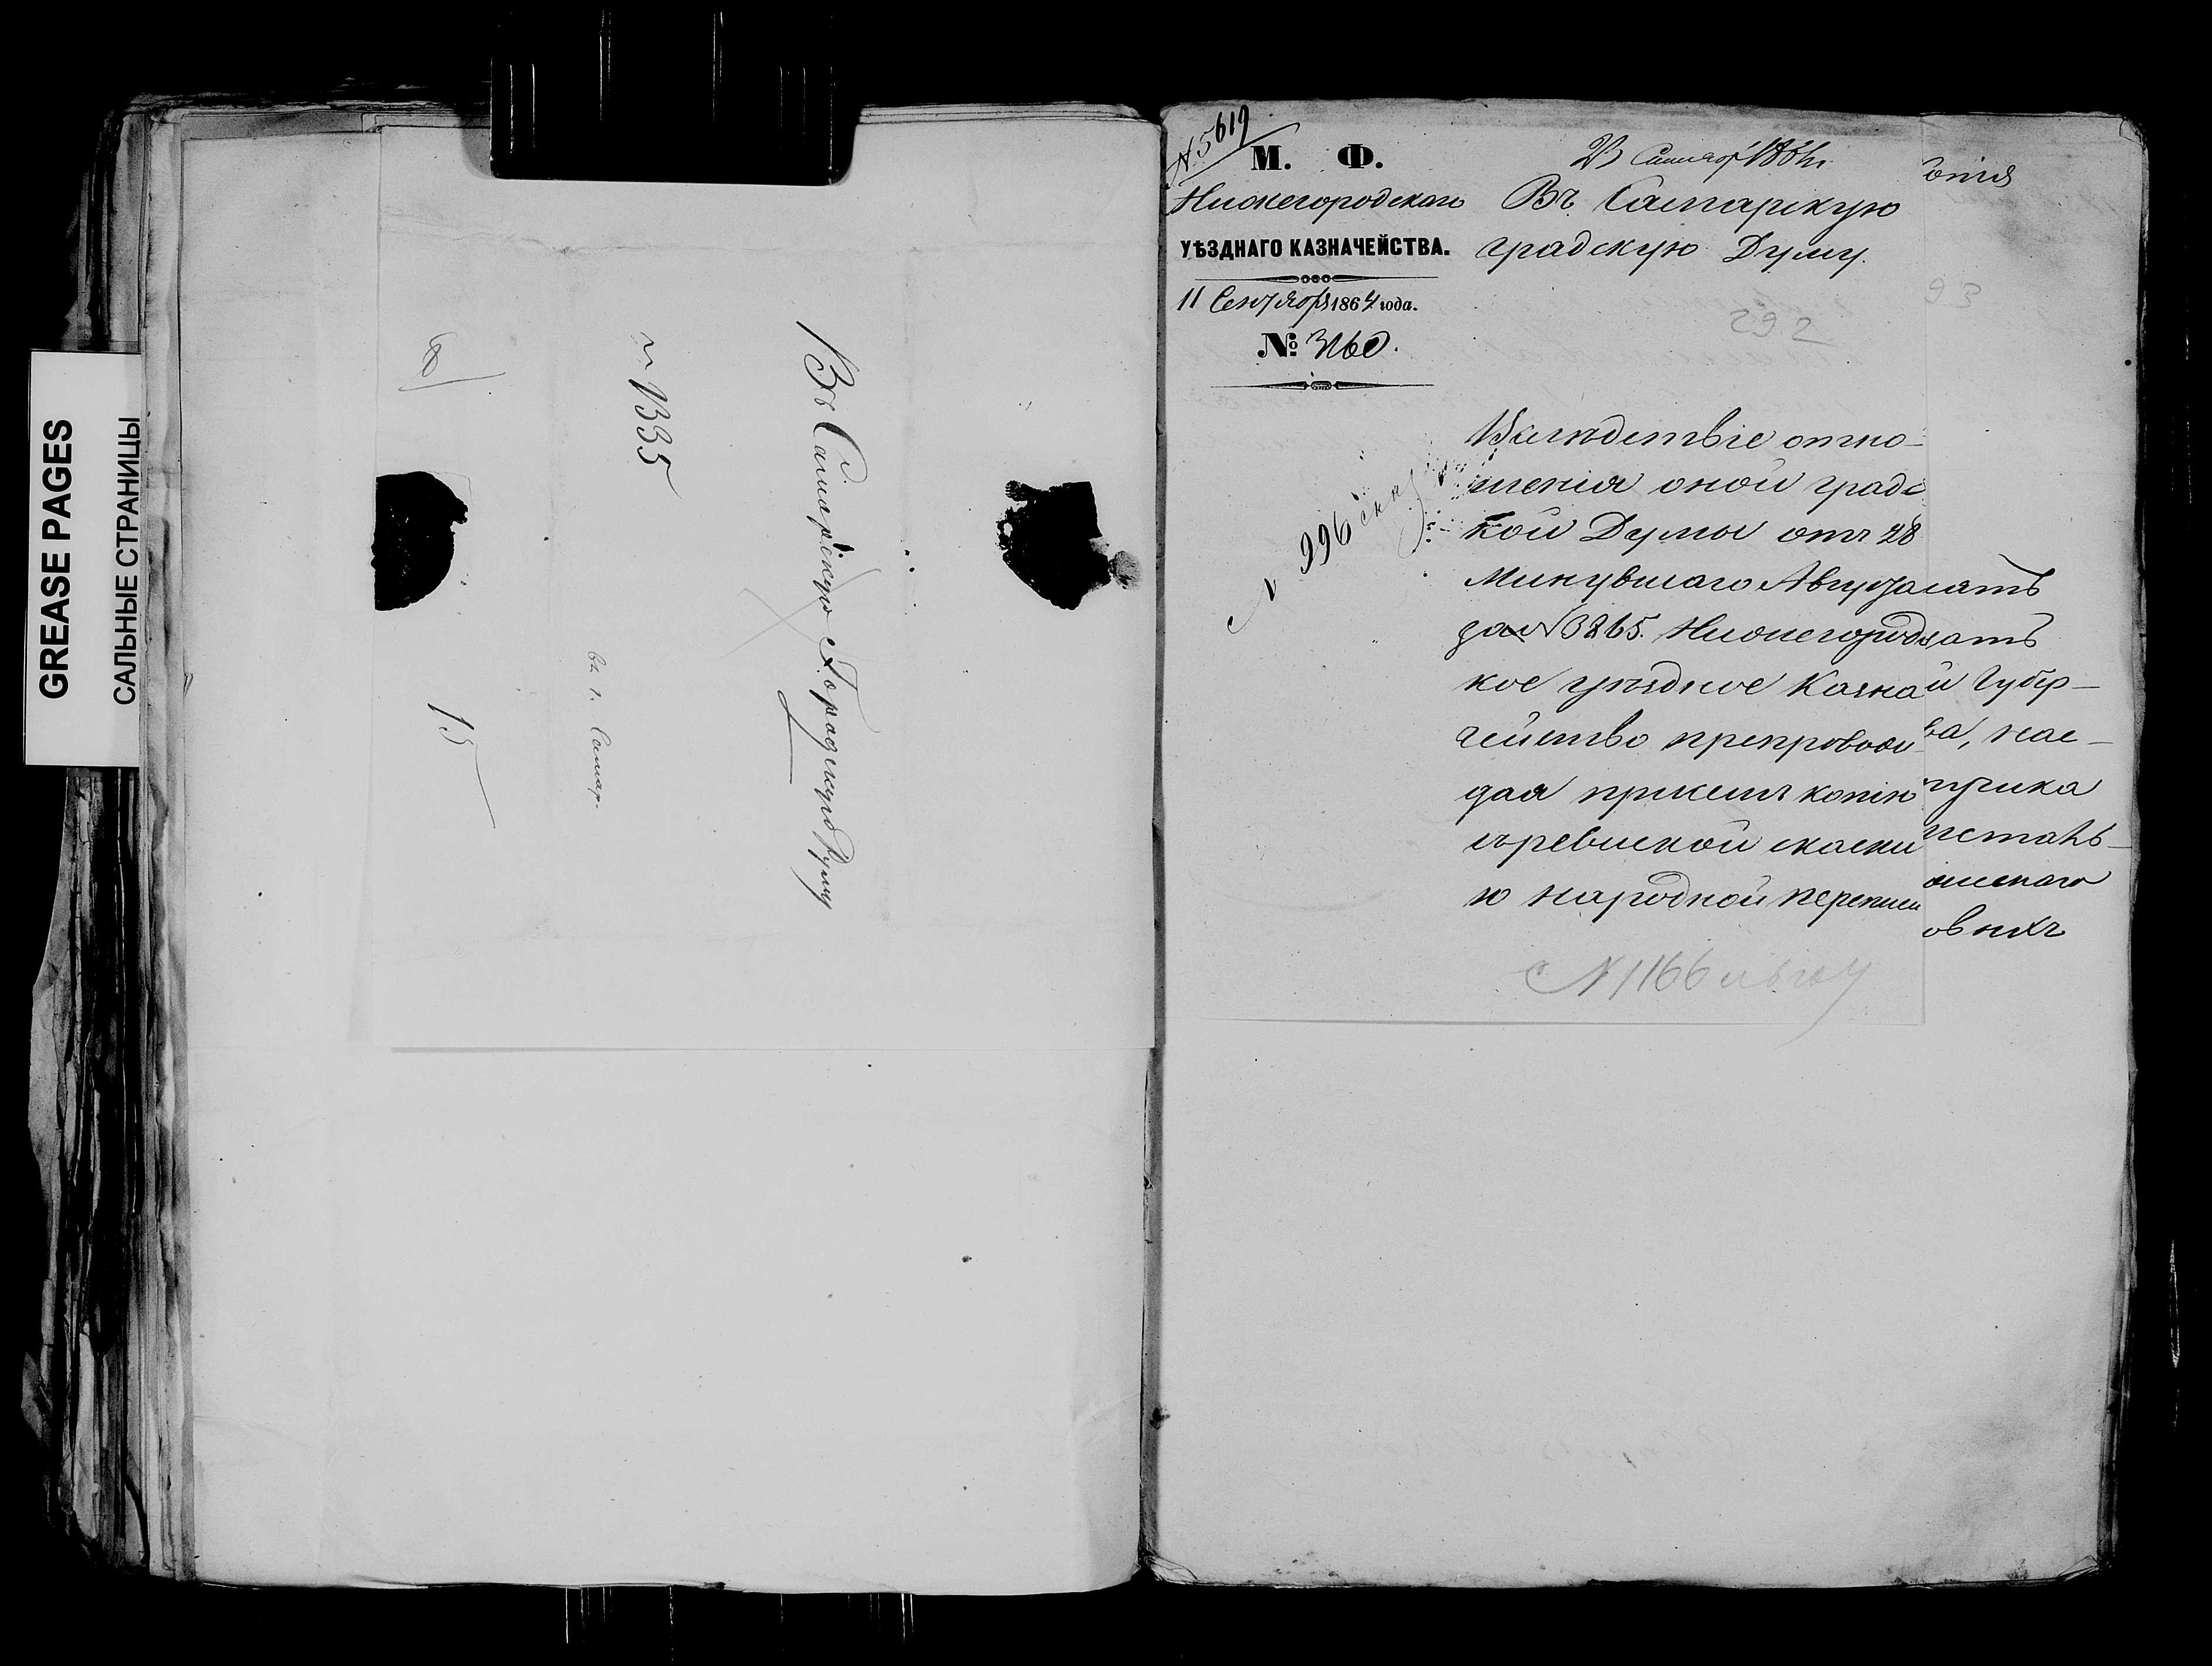 GREASE PAGES
САЛЬНЫЕ СТРАНИЦЫ
Въ Самарскую Городскую Думу
№ 1335
въ г. Самар-
15
№ 5619
М. Ф.
Нижегородскаго
УѢЗДНАГО КАЗНАЧЕЙСТВА.
11 Сентября 1864 года.
№ 3160.
23 Сентяб 1864 г.
Въ Самарскую
градскую Думу.
292
Вслѣдствіе отно-
шенія оной градс
кой Думы отъ 28
Минувшаго Августа
за № 3265. Нижегородс
кое уѣздное Казна
чейство препровож
дая при семъ копію
съ ревиской скаски
ю народной переписи
№ 996
№ 1166
опія
93
сать
сать
й Губер-
ва, нае-
ика
шскаго
овихъ